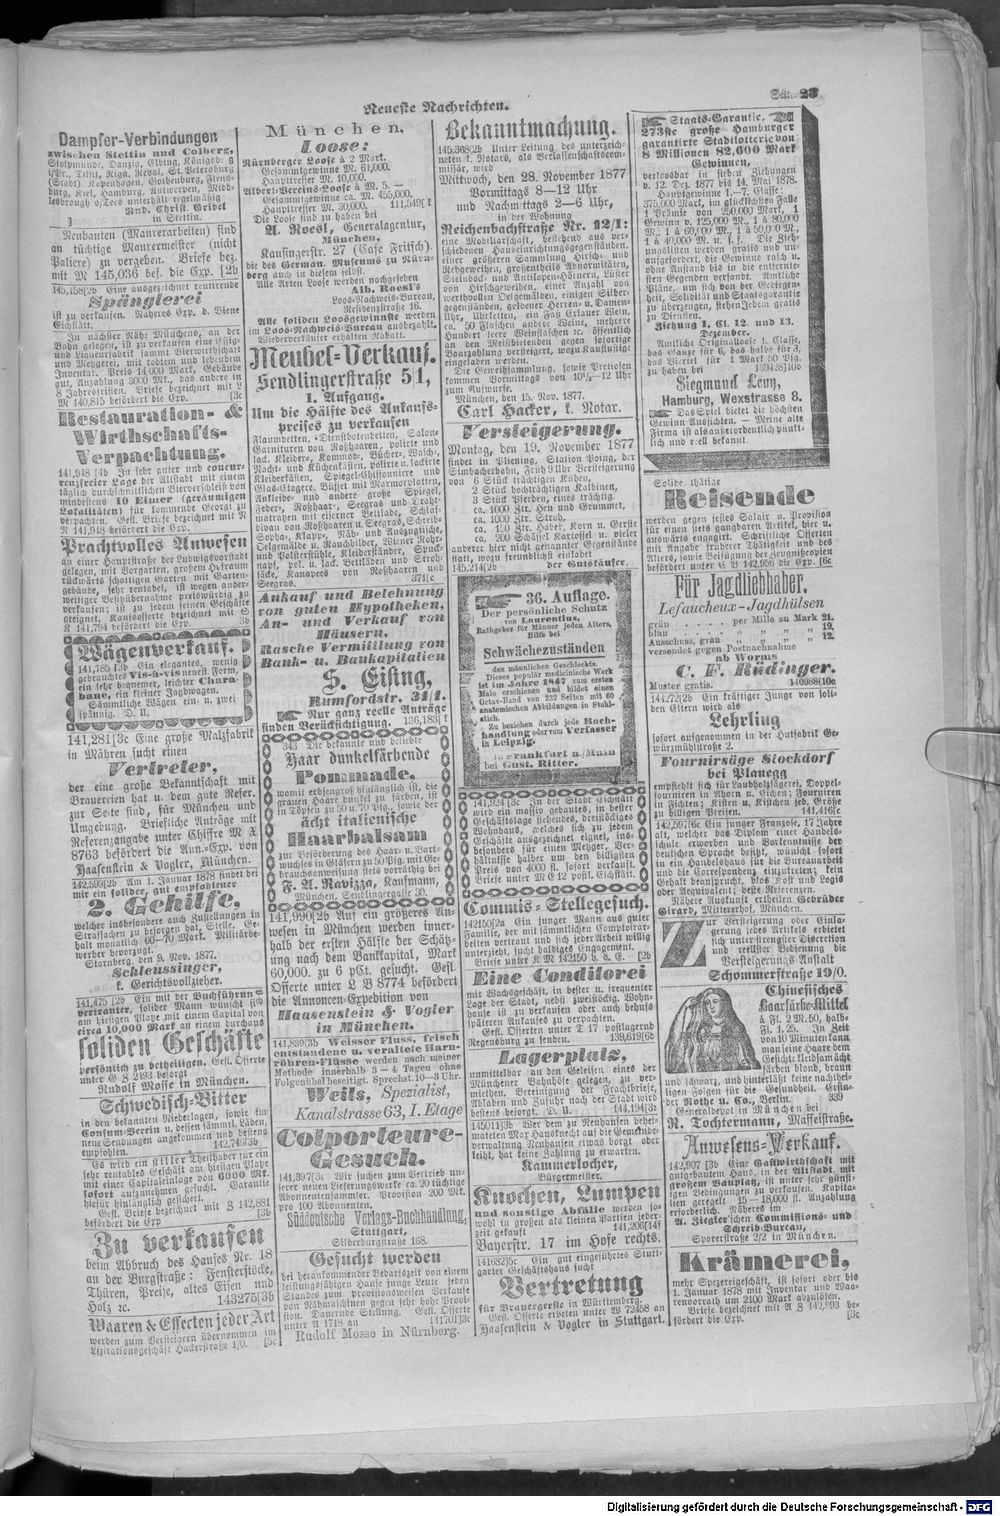 Neueste Nachrichten.
Seite 23
Dampfer-Verbindungen
zwischen Stettin und Colberg,
Stolpmünde, Danzig, Elbing, Königsb.
i/Pr., Tilsit, Riga, Reval, St. Petersburg
(Stadt) Kopenhagen, Gothenburg, Flens-
burg, Kiel, Hamburg, Antwerpen, Midd-
lesbrough o/Tees unterhält regelmäßig
Rud. Christ. Gribel
in Stettin.
Neubauten (Maurerarbeiten) sind
an tüchtige Maurermeister (nicht
Paliere) zu vergeben. Briefe bez.
mit M 145,036 bef. die Exp. [2b
145,158[2b Eine ausgezeichnet rentirende
Spänglerei
ist zu verkaufen. Näheres Exp. d. Viene
Eichstätt.
In nächster Nähe Münchens, an der
Bahn gelegen, ist zu verkaufen eine Essig-
und Liqueurfabrik sammt Bierwirthschaft
und Metzgerei, mit todtem und lebendem
Inventar. Preis 14,000 Mark, Gebäude
gut, Anzahlung 3000 Mk., das andere in
8 Jahresfristen. Briefe bezeichnet mit L
M 140,815 befördert die Exp. [3c
Restauration- &
Wirthschafts-
Verpachtung.
141,948 [4b In sehr guter und concur-
renzfreier Lage der Altstadt mit einem
täglich durchschnittlichen Bierverschleiß von
mindestens 10 Eimer (geräumigen
Lokalitäten) für kommende Georgi zu
verpachten. Gefl. Briefe bezeichnet mit N
N 141,948 befördert die Exp.
Prachtvolles Anwesen
an einer Hauptstraße der Ludwigsvorstadt
gelegen, mit Vorgarten, großem Hofraum
rückwärts schattigen Garten mit Garten-
gebäude, sehr rentabel, ist wegen ander-
weitiger Besitzübernahme preiswürdig zu
verkaufen; ist zu jedem seinen Geschäfte
geeignet. Kaufsofferte bezeichnet mit S
K 141,794 befördert die Exp. 3b
Wägenverkauf.
141,785 [3b Ein elegantes, wenig
gebrauchtes Vis-à-vis neuest. Form,
ein sehr bequemer, leichter Chara-
bane, ein kleiner Jagdwagen.
Sämmtliche Wägen ein- u. zwei
spännig. D. U.
141,281[3c Eine große Malzfabrik
in Mähren sucht einen
Vertreter,
der eine große Bekanntschaft mit
Brauereien hat u. dem gute Refer.
zur Seite sind, für München und
Umgebung. Briefliche Anträge mit
Referenzangabe unter Chiffre M X
8763 befördert die Ann.-Exp. von
Haasenstein & Vogler, München.
142,599[2b Am 1. Januar 1878 findet bei
mir ein solider, gut empfohlener
2. Gehilfe,
welcher insbesondere auch Zustellungen in
Strafsachen zu besorgen hat, Stelle. Ge-
halt monatlich 60–70 Mark. Militärbe-
werber bevorzugt.
Starnberg, den 9. Nov. 1877.
Schleussinger,
k. Gerichtsvollzieher.
141,475 [2b Ein mit der Buchführung
vertrauter, solider Mann wünscht
am hiesigen Platze mit einem Capital von
circa 10,000 Mark an einem durchaus
soliden Geschäfte
persönlich zu betheiligen. Gefl. Offerte
unter G S 2193 besorgt
Rudolf Mosse in München.
Schwedisch-Bitter
in den bekannten Niederlagen, sowie im
Consum-Verein u. dessen sämmtl. Läden,
neue Sendungen angekommen und bestens
empfohlen. 142,746[3b
Es wird ein stiller Theilhaber für ein
sehr rentables Geschäft am hiesigen Platze
mit einer Capitaleinlage von 6000 Mk
sofort aufzunehmen gesucht. Garantie
hiefür hinlänglich gesichert.
Gefl. Briefe bezeichnet mit S 142,881
befördert die Exp [3b
Zu verkaufen
beim Abbruch des Hauses Nr. 18
an der Burgstraße: Fensterstöcke,
Thüren, Preise, altes Eisen und
Holz ec. 143275[3b
Waaren & Effecten jeder Art
werden zum Versteigern übernommen im
Lizitationsgeschäft Hackerstraße 1/0. [5c
München.
Loose:
Nürnberger Loose à 2 Mark.
Gesammtgewinne M. 61,000.
Haupttreffer M. 10,000.
Albert-Vereins-Loose à M. 5. —
Gesammtgewinne ca. M. 455,000.
Haupttreffer M. 30,000. 111,549[t
Die Loose sind zu haben bei
A. Roesl, Generalagentur,
München,
Kaufingerstr. 27 (Café Fritsch).
die des German. Museums zu Nürn-
berg auch in diesem selbst.
Alle Arten Loose werden nachgesehen
Alb. Roesl's
Loos-Nachweis-Bureau,
Residenzstraße
Alle soliden Loosgewinnste werden
im Loos-Nachweis-Bureau ausbezahlt.
Wiederverkäufer erhalten Rabatt.
Meubel-Verkauf.
Sendlingerstraße 51,
1. Aufgang.
Um die Hälfte des Ankaufs-
preises zu verkaufen
Flaumbetten, Dienstbotenbetten, Salon-
Garnituren von Roßhaaren, polirte und
lack. Kleider-, Kommod-, Bücher-, Wasch-,
Nacht- und Küchenkästen, polirte u. lackirte
Kleiderkästen, Spiegel-Chiffonniere und
Glas-Etagere, Büffet mit Marmorplatten,
Ankleide- und andere große Spiegel,
Feder-, Roßhaar-, Seegras und Draht-
matratzen mit eiserner Bettlade, Schlaf-
divan von Roßhaaren u. Seegras, Schreib-
Sopha-, Klapp-, Näh- und Auszugtische,
Oelgemälde u. Rauchbilder, Wiener Rohr-
und Polsterstühle, Kleiderständer, Spuck-
napf, pol. u. lack. Bettläden und Stroh-
säcke, Kanapees von Roßhaaren und
Seegras. 371[c
Ankauf und Belehnung
von guten Hypotheken,
An- und Verkauf von
Häusern,
Rasche Vermittlung von
Bank- u. Bankapitalien
S. Eising,
Rumfordstr. 31/1.
Nur ganz reelle Anträge
finden Berücksichtigung. 136,183[t
343 Die bekannte und beliebte
Haar dunkelfärbende
Pommade,
womit erbsengroß hinlänglich ist, die
grauen Haare dunkel zu färben, ist
in Töpfen zu 50 Pfg., sowie der
ächt italienische
Haarbalsam
zur Beförderung des Haar- u. Bart-
wuchses in Gläsern zu 50 Pfg. mit Ge-
brauchsanweisung stets vorräthig bei
F. A. Ravizza, Kaufmann,
München, Sendlingergasse 39.
141,990[2b Auf ein größeres An-
wesen in München werden inner-
halb der ersten Hälfte der Schätz-
ung nach dem Bankapital, Mark
60,000. zu 6 pCt. gesucht. Gefl.
Offerte unter L B 8774 befördert
die Annoncen-Expedition von
Haasenstein & Vogler
in München.
141,839[3b Weisser Fluss, frisch
entstandene u. veraltete Harn-
röhren-Flüsse werden nach meiner
Methode innerhalb 3—4 Tagen ohne
Folgenübel beseitigt. Sprechst. 10—3 Uhr.
Weils, Spezialist,
Kanalstrasse 63, I. Etage
Colporteure-
Gesuch.
141,397[3c Wir suchen zum Vertrieb un-
serer neuen Lieferungswerke ca. 20 tüchtige
Abonnentensammler. Provision 200 Mk.
pro 100 Abonnenten.
Süddeutsche Verlags-Buchhandlung,
Stuttgart,
Silberburgstraße 168.
Gesucht werden
bei herankommender Bedarfszeit von einem
leistungsfähigen Hause junge Leute jeden
Standes zum provisionsweisen Verkaufe
von Nähmaschinen gegen sehr hohe Provi-
sion. Dauernde Stellung. Gefl. Offerte
unter A 1718 an 141701[3c
Rudolf Mosse in Nürnberg.
Bekanntmachung.
145,368[2b Unter Leitung des unterzeich-
neten k. Notars, als Verlassenschaftscom-
missär, wird
Mittwoch, den 28. November 1877
Vormittags 8—12 Uhr
und Nachmittags 2—6 Uhr,
in der Wohnung
Reichenbachstraße Nr. 12/1:
eine Mobiliarschaft, bestehend aus ver-
schiedenen Hauseinrichtungsgegenständen.
einer größeren Sammlung Hirsch- und
Rehgeweihen, großentheils Abnormitäten,
Steinbock- und Antilopen-Hörnern, Lüster
von Hirschgeweihen, einer Anzahl von
werthvollen Oelgemälden, einigen Silber-
gegenständen, goldener Herren- u. Damen-
Uhr, Uhrketten, ein Faß Erlauer Wein,
ca. 50 Flaschen andere Weine, mehrere
Hundert leere Weinflaschen ec. öffentlich
an den Meistbietenden gegen sofortige
Baarzahlung versteigert, wozu Kauflustige
eingeladen werden.
Die Geweihsammlung, sowie Pretiosen
kommen Vormittags von 10½—12 Uhr
zum Aufwurfe.
München, den 15. Nov. 1877.
Carl Hacker, k. Notar.
Versteigerung.
Montag, den 19. November 1877
findet in Pliening, Station Poing, der
Simbacherbahn, Früh 9 Uhr Versteigerung
von 6 Stück trächtigen Kühen,
2 Stück hochträchtigen Kalbinen,
3 Stück Pferden, eines trächtig.
ca. 1000 Ztr. Heu und Grummet,
ca. 1000 Ztr. Stroh,
ca. 150 Ztr. Haber, Korn u. Gerste
ca. 200 Schäffel Kartoffel u. vieler
anderer hier nicht genannter Gegenstände
statt, wozu freundlichst einladet
145,214[2b der Gutskäufer.
36. Auflage.
Der persönliche Schutz
von Laurentius,
Rathgeber für Männer jeden Alters,
Hilfe bei
Schwächezuständen
des männlichen Geschlechts.
Dieses populär medicinische Werk
ist im Jahre 1847 zum ersten
Male erschienen und bildet einen
Octav-Band von 232 Seiten mit 60
anatomischen Abbildungen in Stahl-
stich.
Zu beziehen durch jede Buch-
handlung oder vom Verfasser
in Leipzig.
in Frankfurt a./Main
bei Gust. Ritter.
141,924 [3c In der Stadt Eichstätt
wird ein massiv gebautes, in bester
Geschäftslage stehendes, dreistöckiges
Wohnhaus, welches sich zu jedem
Geschäfte ausgezeichnet eignet, ins-
besonders für einen Metzger, Ver-
hältnisse halber um den billigen
Preis von 4000 fl. sofort verkauft.
Briefe unter M E 12 postl. Eichstätt.
Commis-Stellegesuch.
142150[2a Ein junger Mann aus guter
Familie, der mit sämmtlichen Comptoirar-
beiten vertraut und sich jeder Arbeit willig
unterzieht, sucht baldiges Engagement.
Briefe unter K M 142150 b. d. E. [2b
Eine Conditorei
mit Wachsgeschäft, in bester u. frequenter
Lage der Stadt, nebst zweistöckig. Wohn-
hause ist zu verkaufen oder auch behufs
späteren Ankaufes zu verpachten.
Gefl. Offerten unter T 17 postlagernd
Regensburg zu senden. 139,619[6b
Lagerplatz,
unmittelbar an den Geleisen eines der
Münchener Bahnhöfe gelegen, zu ver-
miethen. Vereinigung der Frachtbriefe,
Abladen und Zufuhr nach der Stadt wird
bestens besorgt. D. U. 144,194[3t
145011[3b Wer dem zu Neuhausen behei-
matheten Max Hausknecht auf die Gemeinde-
verwaltung Neuhausen etwas borgt oder
leiht, hat keine Zahlung zu erwarten.
Kammerlocher,
Bürgermeister.
Knochen, Lumpen
und sonstige Abfälle werden so-
wohl in großen als kleinen Partien jeder-
zeit gekauft 141,206[14f
Bayerstr. 17 im Hofe rechts.
141682[5c Ein gut eingeführtes Stutt-
garter Geschäftshaus sucht
Vertretung
für Brauergerste in Württemberg.
Gefl. Offerte erbeten unter W 72458 an
Haasenstein & Vogler in Stuttgart.
Staats-Garantie.
273ste große Hamburger
garantirte Stadtlotterie von
8 Millionen 82,600 Mark
Gewinnen,
vertheilt in sieben Ziehungen
v. 12. Dez. 1877 bis 14. Mai 1878.
Hauptgewinne 1.—7. Classe:
375,000 Mark, im glücklichsten Falle
1 Prämie von 250,000 Mark, 1
Gewinn v. 125,000 M., 1 à 80,000
M., 1 à 60,000 M., 1 à 50,000 M.,
1 à 40,000 M. u. s. f. Die Zieh-
ungslisten werden gratis und un-
aufgefordert, die Gewinne rasch u.
ohne Anstand bis in die entfernte-
sten Gegenden versandt. Amtliche
Pläne, um sich von der Gediegen-
heit, Solidität und Staatsgarantie
zu überzeugen, stehen Jedem gratis
zu Diensten.
Ziehung I. Cl. 12. und 13.
Dezember.
Amtliche Originalloose I. Classe,
das Ganze für 6, das halbe für 3,
das Viertel für 1 Mark 50 Pfg.
zu haben bei 139428[10b
Siegmund Levy,
Hamburg, Wexstrasse 8.
Das Spiel bietet die höchsten
Gewinn-Aussichten. — Meine alte
Firma ist als außerordentlich pünkt-
lich und reell bekannt.
Solide, thätige
Reisende
werden gegen festes Salair u. Provision
für einen stets gangbaren Artikel, hier u.
auswärts engagirt. Schriftliche Offerten
mit Angabe früherer Thätigkeit und des
Alters, sowie Beifügung der Zeugnißcopien
befördert unter C B 142,956 die Exp. [6c
Für Jagdliebhaber.
Lefaucheux-Jagdhülsen
grün . . . . . per Mille zu Mark 21.
blau „ „ „ „ 19.
Ausschuss, grau „ „ „ „ 12.
versendet gegen Postnachnahme
ab Worms
C. F. Rüdinger.
Muster gratis. 140988[10c
144272[2b Ein kräftiger Junge von soli-
den Eltern wird als
Lehrling
sofort aufgenommen in der Hutfabrik Ge-
würzmühlstraße 2.
Fournirsäge Stockdorf
bei Planegg
empfiehlt sich für Laubholzsägerei, Doppel-
fourniren in Ahorn u. Eichen; Fourniren
in Fichten; Kisten u. Kistchen jed. Größe
zu billigen Preisen. 141,416[c
142,597[6c Ein junger Franzose, 17 Jahre
alt, welcher das Diplom einer Handels-
schule erworben und Vorkenntnisse der
deutschen Sprache besitzt, wünscht sofort
in ein Handelshaus für die Bureauarbeit
und die Correspondenz einzutreten; kein
Gehalt beansprucht, blos Kost und Logis
oder Aequivalent; beste Referenzen.
Nähere Auskunft ertheilen Gebrüder
Girard, Mittererhof, München.
Zur Versteigerung oder Einla-
gerung jedes Artikels erbietet
sich unter strengster Discretion
und reellster Bedienung die
Versteigerungs-Anstalt
Schommerstraße 19/0.
Chinesisches
Haarfärbe-Mittel
à Fl. 2 M.50, halbe
Fl. 1.25. In Zeit
von 10 Minuten kann
man seine Haare dem
Gesicht kleidsamst
färben blond, braun
und schwarz, und hinterläßt keine nachthei-
ligen Folgen für die Gesundheit. Erfin-
der Rothe u. Co., Berlin. 339
Generaldepot in München bei
R. Tochtermann, Maffeistraße.
Anwesens-Verkauf.
142,907 [3b Eine Gastwirthschaft mit
gutgebautem Haus, in der Altstadt, mit
großem Bauplatz, ist unter sehr günst-
igen Bedingungen zu verkaufen. Kapita-
lien geregelt 15—18,000 fl. Anzahlung
erforderlich. Näheres im
A. Ziegler'schen Commissions- und
Schreib-Bureau,
Sporerstraße 2/2 in München.
Krämerei,
mehr Spezereigeschäft, ist sofort oder bis
1. Januar 1878 mit Inventar und Waa-
renvorrath um 2100 Mark abzulösen.
Briefe bezeichnet mit A S 142,993 be-
fördert die Exp. [3c
Digitalisierung gefördert durch die Deutsche Forschungsgemeinschaft - DFG